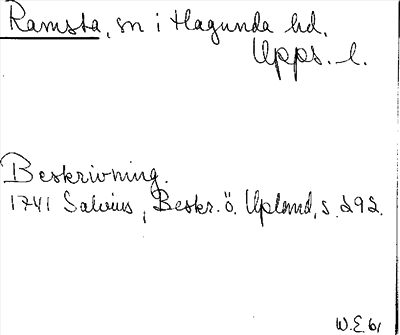 Ramsta, sn i Hagunda hd.
Upps. l.
Beskrivning.
1741 Salvius, Beskr. ö. Upland, s. 292.
W.E. 61